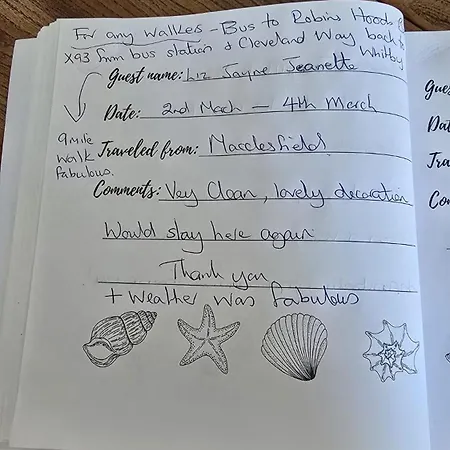 For any walkers - Bus to Robins Hoods
X93 from bus station & Cleveland Way back to
Whitby
Guest name: Liz Jayne Jeanette
Date: 2nd Mach — 4th March
9 mile
walk
fabulous.
Traveled from: Macclesfield
Comments: Vey Clean, lovely decoration
Would stay here again
Thank you
+ Weather was fabulous
Gues
Dat
Tra
Con